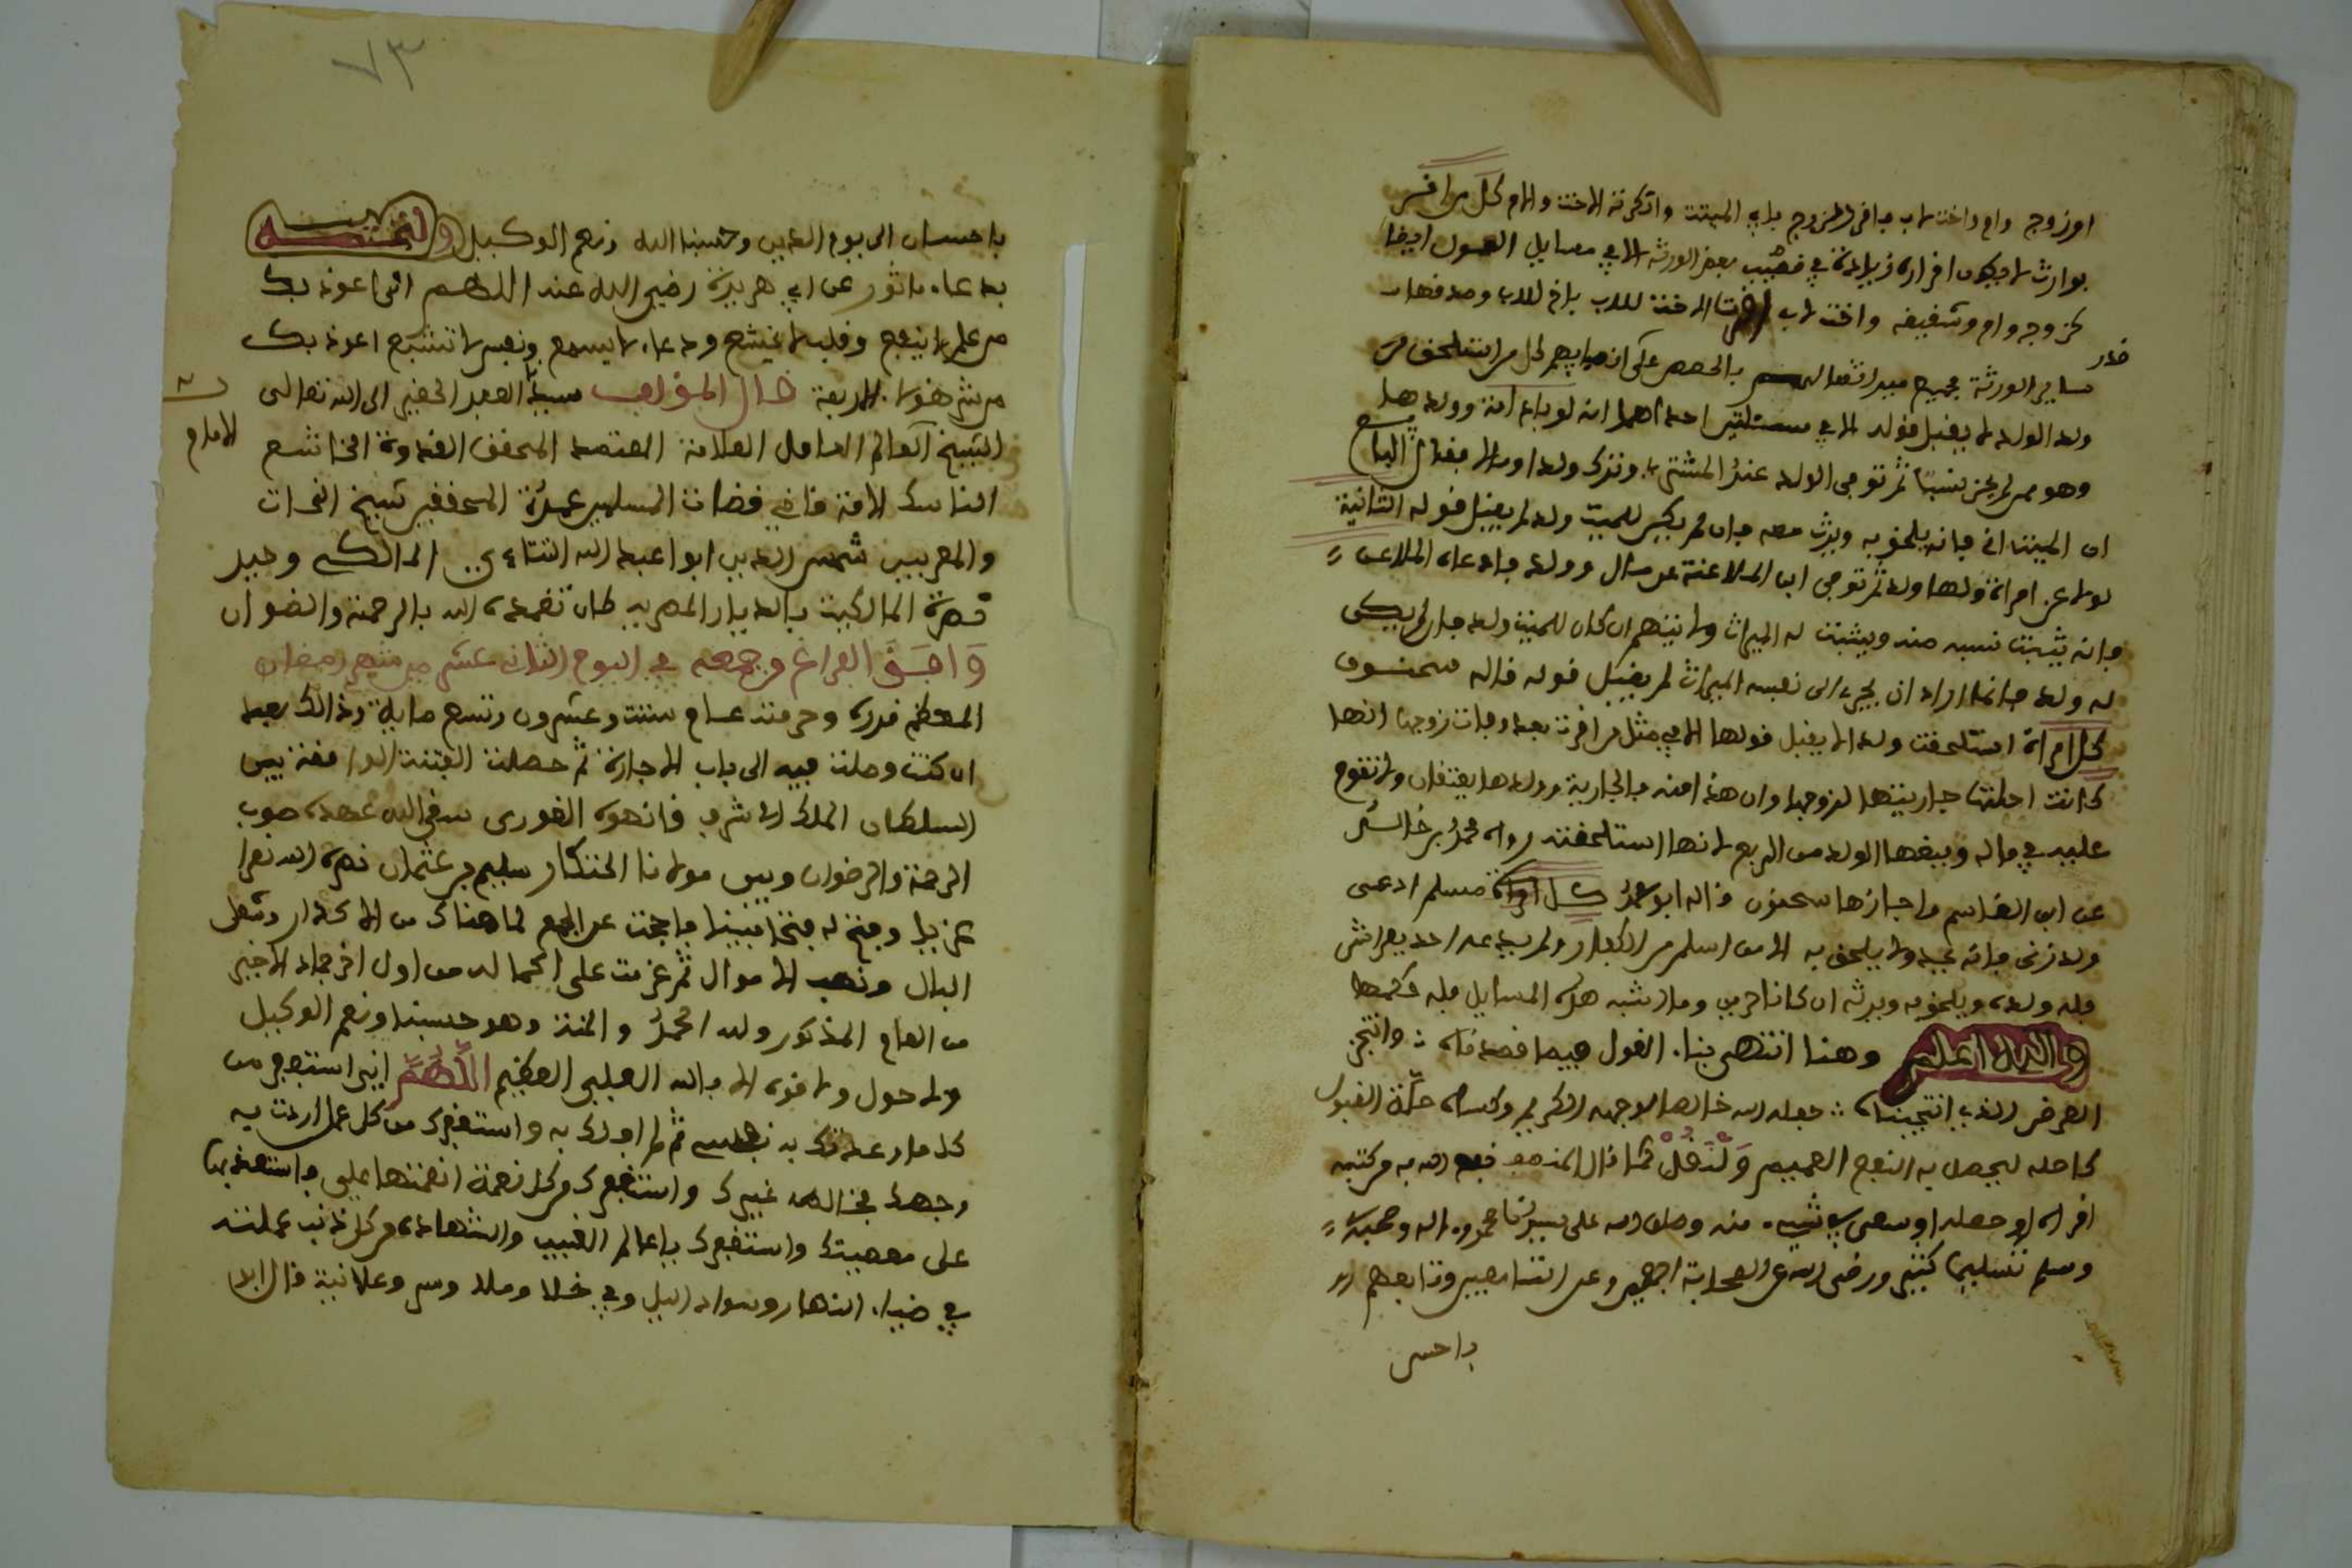 او زوج وام واخت لاب فاقر الزوج بابن الميت وانكرته الاخت والام كل من اقر
بوارث لا يكون اقراره زيادة في نصيب بعض الورثة الا في مسايل العول ايضا
كزوج وام وشقيقة واخت لاب اقرت الاخت للاب باخ للاب وصدقها
ساير الورثة جميع ميراثها بالحصص على انصبايهم كل من استلحق
قدر
ولد الولد لم يقبل قوله الا في مسئلتين احداهما انه لو باع امة وولدها
وهو ممن لم يحز نسبا ثم توفي الولد عند المشتري وترك ولدا ومالا فقال البايع
ان الميت ابني فانه يلحق به ويرث معه فان لم يكن للميت ولد لم يقبل قوله الثانية
لو لاعن امراة ولها ولد ثم توفي ابن الملاعنة عن مال وولد فادعاه الملاعن
فانه يثبت نسبه منه ويثبت له الميراث ولا يتهم ان كان للميت ولد فان لم يكن
له ولد فانما اراد ان يجر الى نفسه الميراث لم يقبل قوله قاله سحنون
كل امراة استلحقت ولدا لا يقبل قولها الا في مثل من اقرت بعد وفات زوجها انها
كانت احلت جاريتها لزوجها وان هذا منه فالجارية وولدها يعتقان ولا تقوم
عليه في ماله وينقصها الولد من الربع لانها استلحقته رواه محمد بن خالد
عن ابن القاسم واجازها سحنون قاله ابو عمر كل امراة مسلم ادعى
ولد زنى فانه عبد ولا يلحق به الا من اسلم من الكفار ولم يدعه احد بفراش
فله ولده ويلحق به ويرثه ان كانا حرين وما اشبه هذه المسايل فله حكمها
والله اعلم وهنا انتهى بنا القول فيما قصدناه وانتجز
الغرض الذي انتحيناه جعله الله خالصا لوجهه الكريم وكساه حلة القبول
كاصله ليحصل به النفع العميم ولنقل كما قال المنصف نفع الله به من كتبه
اقراه او حصله او سعى في شيء منه وصلى الله على سيدنا محمد واله وصحبه
وسلم تسليما كثيرا ورضي الله عن الصحابة اجمعين وعن التابعين وتابعهم
باحسان
٧٣
باحسان الى يوم الدين وحسبنا الله ونعم الوكيل ولنختمه
بدعاء ماثور عن ابي هريرة رضي الله عنه اللهم اني اعوذ بك
من علم لا ينفع وقلب لا يخشع ودعاء لا يسمع ونفس لا تشبع اعوذ بك
من شر هؤلاء الاربعة قال المؤلف سيدنا العبد الحقير الى الله تعالى
الشيخ العالم العامل العلامة المعتمد المحقق القدوة الخاشع
الامام
الناسك لامة قاضي قضات المسلمين عمدة المحققين شيخ النحات
والمعربين شمس الدين ابوا عبد الله التتاءي المالكي وحيد
قصرة المالكية بالديار المصرية كان تغمده الله بالرحمة والضوان
وافق الفراغ وجمعه في اليوم الثاني عشر من شهر رمضان
المعظم قدره وحرمته عام ست وعشرون وتسع ماية وذالك بعد
ان كنت وصلت فيه الى باب الاجارة ثم حصلت الفتنة الواقعة بين
السلطان الملك الاشرف قانصوه الغوري سقى الله عهده صوب
الرحمة والرضوان وبين مولانا الخنكار سليم بن عثمان نصره الله نصرا
عزيزا وفتح له فتحا مبينا فاجحت عن الجمع لما هناك من الاكدار وشغل
البال ونهب الاموال ثم عزمت على اكماله من اول اخر جماد الاخير
من العام المذكور ولله الحمد والمنة وهو حسبنا ونعم الوكيل
ولا حول ولا قوة الا بالله العلي العظيم اللهم اني استغفرك من
كل ما وعدتك به نفسي ثم لم اوف لك به واستغفرك من كل عمل اردت به
وجهك فخالطه غيرك واستغفرك من كل نعمة انعمتها علي فاستعنت بها
على معصيتك واستغفرك يا عالم الغيب والشهادة من كل ذنب عملته
في ضياء النهار وسواد اليل وفي خلا وملا وسر وعلانية قال